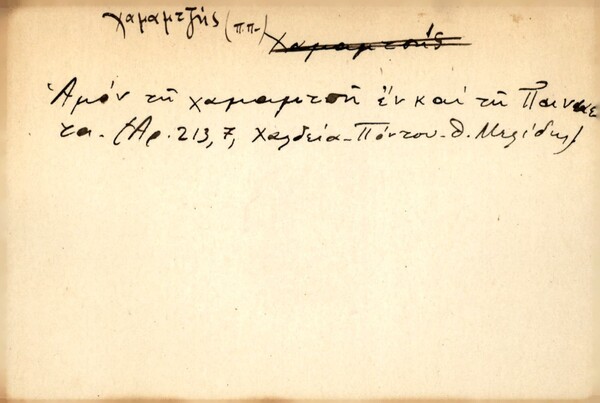 χαμαμτζής (π.π-) χαμαμτσής
Ἀμὸν τῆ χαμαμτσῆ ἔν καὶ τῆ
τα. (Αρ. 213, 7, Χαλδεία - Πόντου - Θ. Μελίδης)